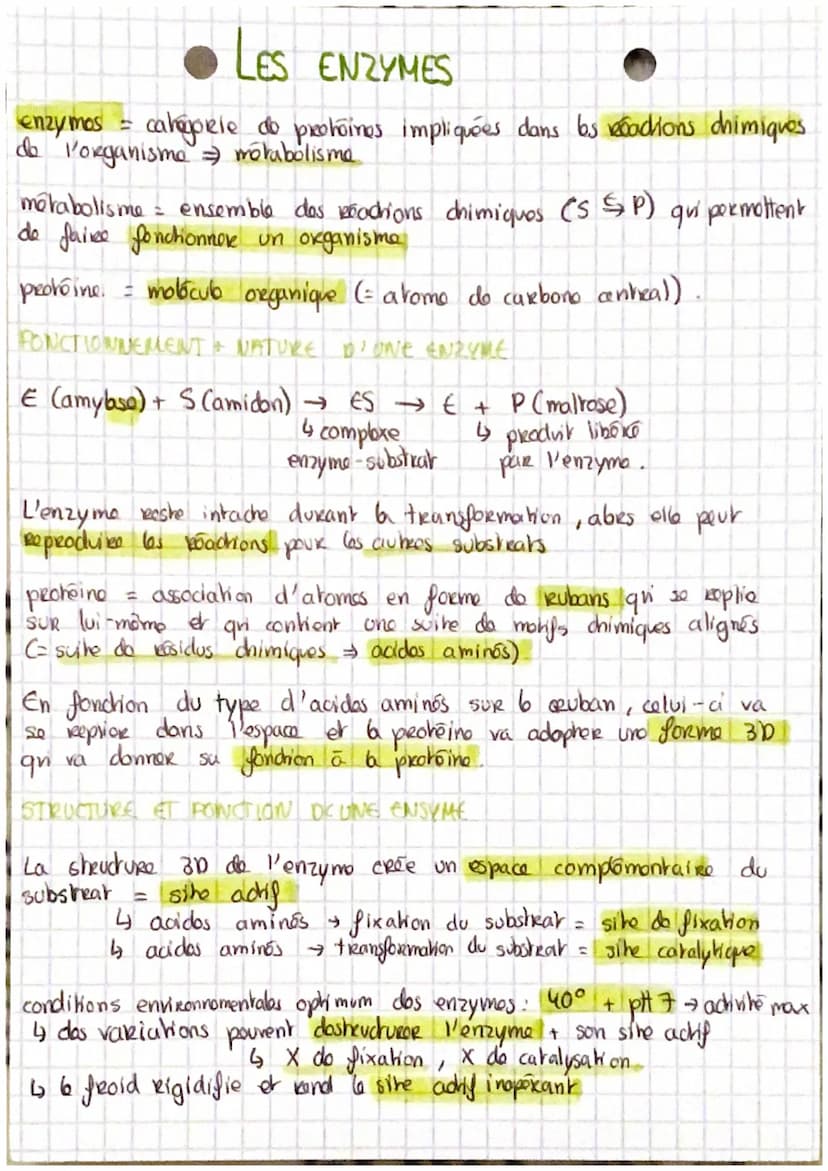 LES ENZYMES
enzymes = catégorie de protéines impliquées dans les réactions chimiques
de l'organisme ⇒ métabolisme
métabolisme = ensemble des réactions chimiques (S ⇆ P) qui permettent
de faire fonctionner un organisme
protéine = molécule organique (= atome de carbone central).
FONCTIONNEMENT + NATURE D'UNE ENZYME
E (amylase) + S (amidon) → ES → E + P (maltose)
↳ complexe ↳ produit libéré
enzyme-substrat par l'enzyme.
L'enzyme reste intacte durant la transformation, alors elle peut
reproduire les réactions pour les autres substrats
protéine = association d'atomes en forme de rubans qui se replie
sur lui-même et qui contient une suite de motifs chimiques alignés
(= suite de résidus chimiques ⇒ acides aminés)
En fonction du type d'acides aminés sur le ruban, celui-ci va
se replier dans l'espace et la protéine va adopter une forme 3D
qui va donner sa fonction à la protéine.
STRUCTURE ET FONCTION DE UNE ENSYME
La structure 3D de l'enzyme crée un espace complémentaire du
substrat = site actif
↳ acides aminés → fixation du substrat = site de fixation
↳ acides aminés → transformation du substrat = site catalytique
conditions environnementales optimum des enzymes : 40° + pH 7 → activité max
↳ des variations peuvent destructurer l'enzyme + son site actif
↳ X de fixation, X de catalysation
↳ le froid rigidifie et rend le site actif inopérant